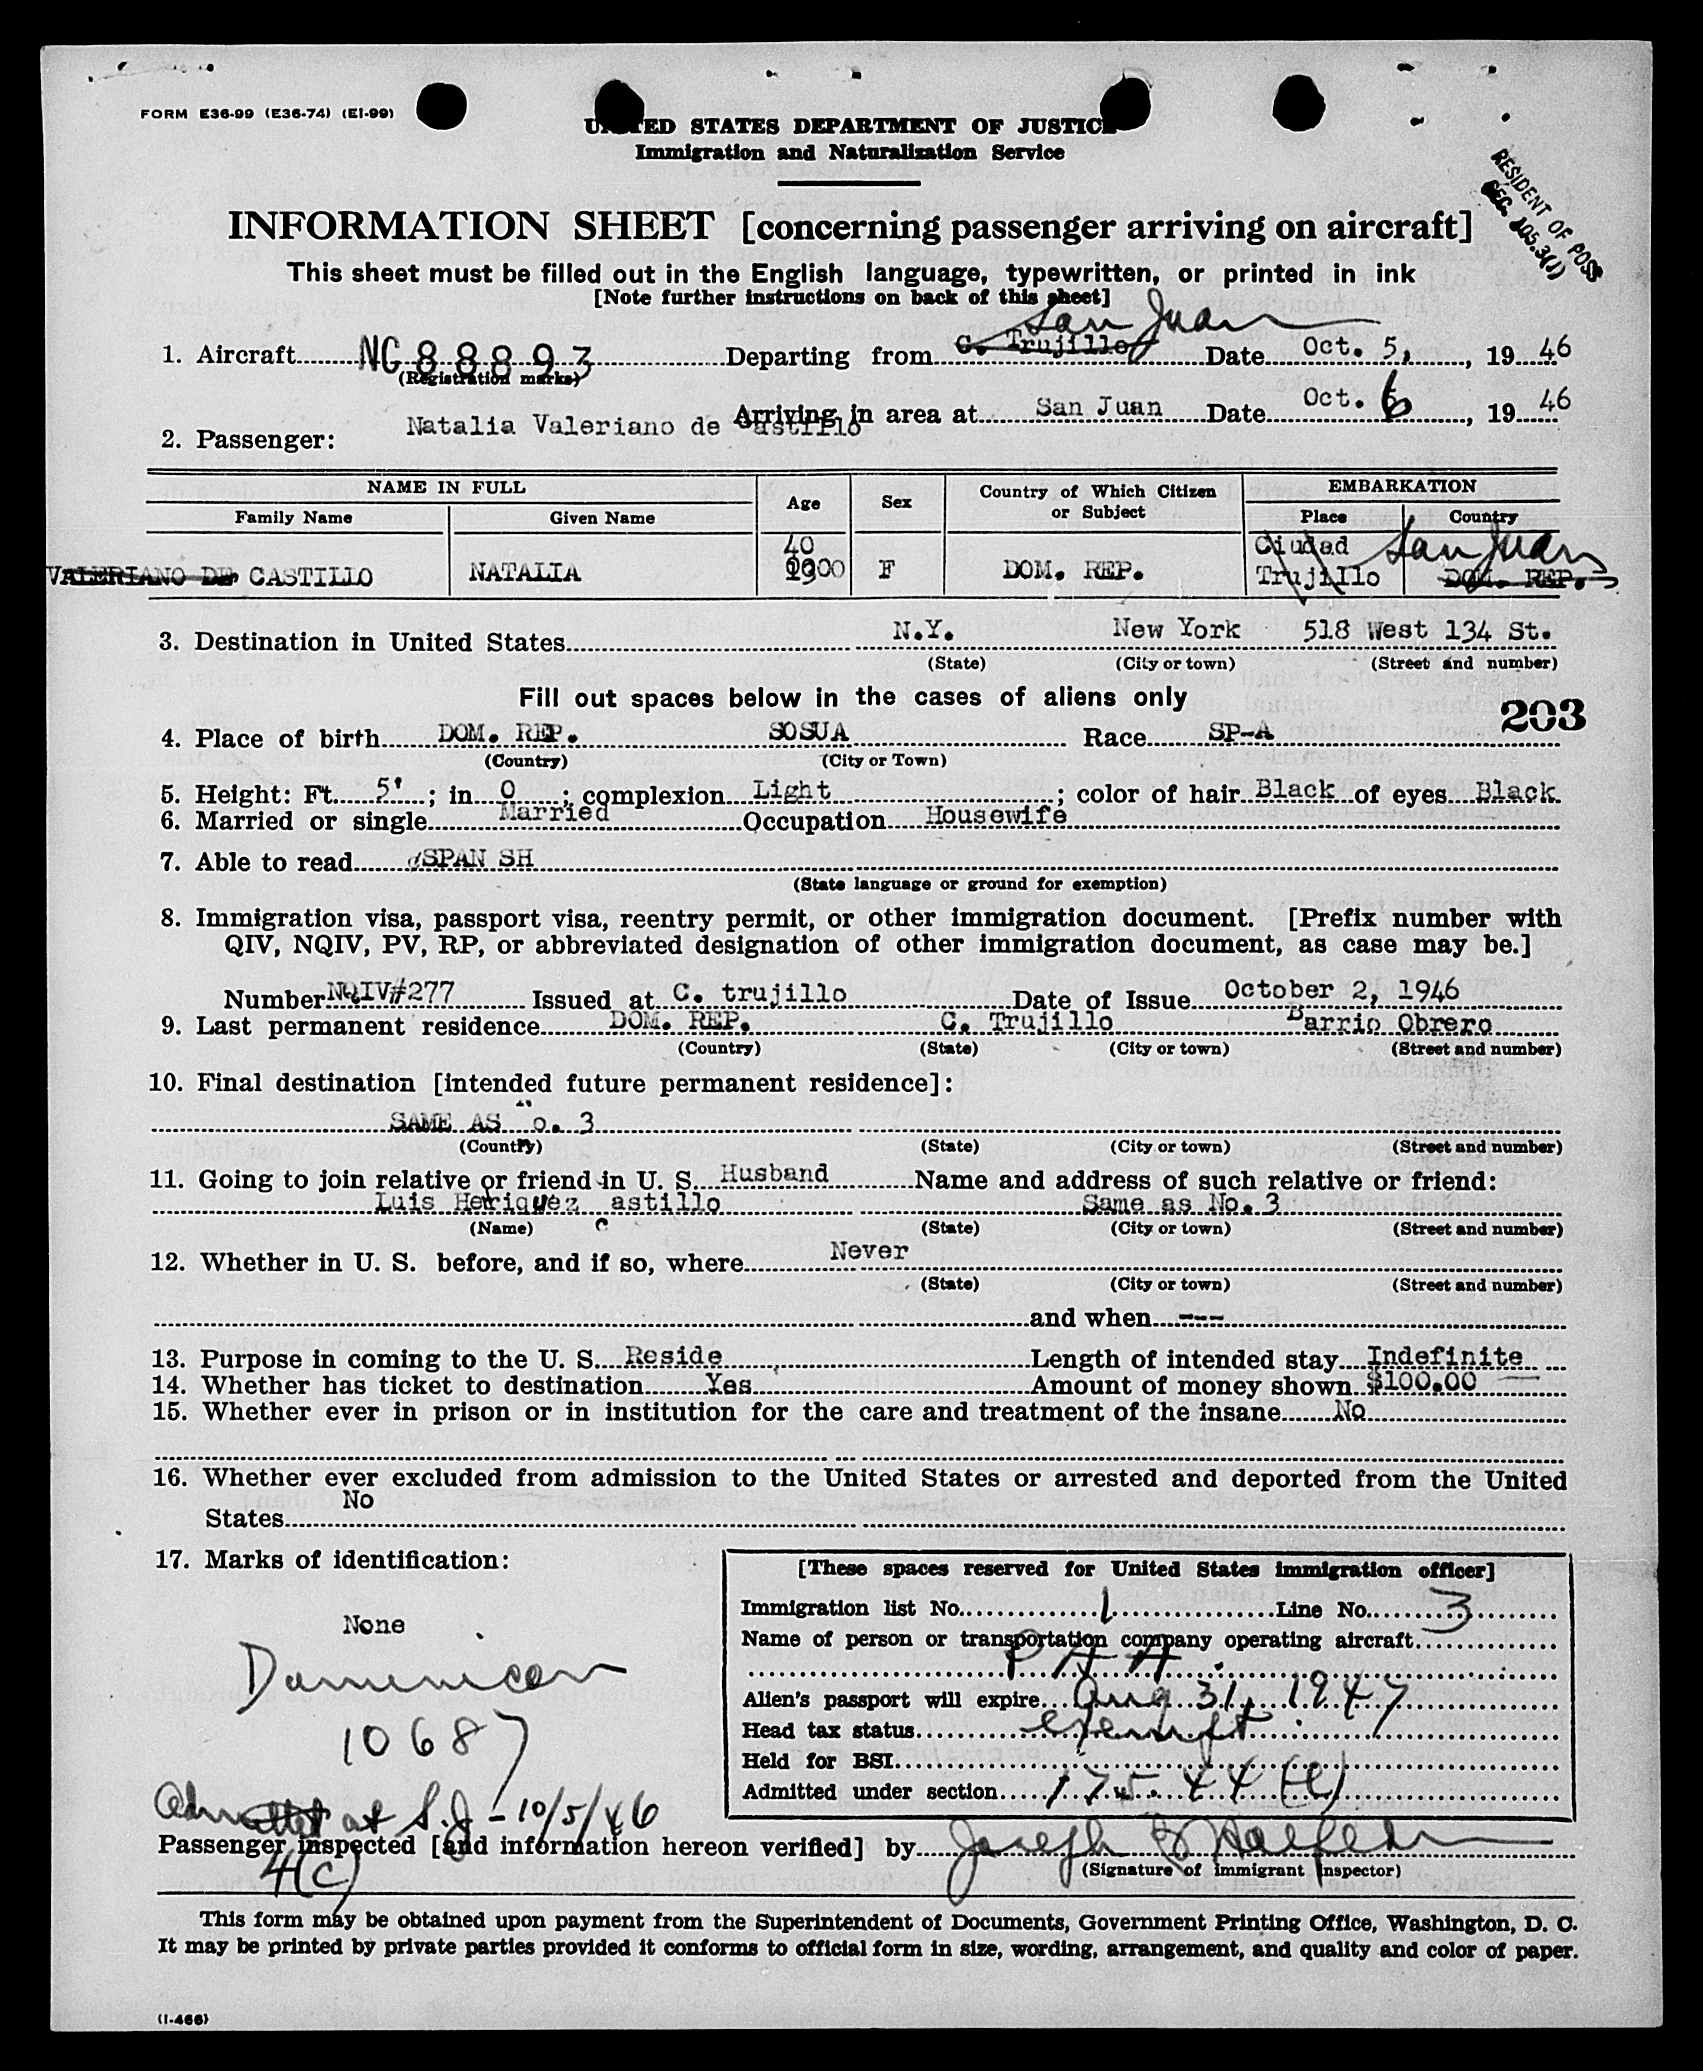 FORM E36-99 (E36-74) (EI-99)
UNITED STATES DEPARTMENT OF JUSTICE
Immigration and Naturalization Service
RESIDENT OF POSS
SEC. 105.3(1)
INFORMATION SHEET [concerning passenger arriving on aircraft]
This sheet must be filled out in the English language, typewritten, or printed in ink
[Note further instructions on back of this sheet]
San Juan
1. Aircraft NC 88893 Departing from C. Trujillo Date Oct. 5, , 19 46
(Registration marks)
Arriving in area at San Juan Date Oct. 6 , 19 46
2. Passenger: Natalia Valeriano de Castillo
NAME IN FULL Age Sex Country of Which Citizen or Subject EMBARKATION
Family Name Given Name Place Country
40 Ciudad San Juan
VALERIANO DE CASTILLO NATALIA F DOM. REP. Trujillo DOM. REP.
3. Destination in United States N.Y. New York 518 West 134 St.
(State) (City or town) (Street and number)
Fill out spaces below in the cases of aliens only
203
4. Place of birth DOM. REP. SOSUA Race SP-A
(Country) (City or Town)
5. Height: Ft. 5' ; in. 0 ; complexion Light ; color of hair Black of eyes Black
6. Married or single Married Occupation Housewife
7. Able to read SPAN SH
(State language or ground for exemption)
8. Immigration visa, passport visa, reentry permit, or other immigration document. [Prefix number with
QIV, NQIV, PV, RP, or abbreviated designation of other immigration document, as case may be.]
Number NQIV#277 Issued at C. trujillo Date of Issue October 2, 1946
9. Last permanent residence DOM. REP. C. Trujillo Barrio Obrero
(Country) (State) (City or town) (Street and number)
10. Final destination [intended future permanent residence]:
SAME AS No. 3
(Country) (State) (City or town) (Street and number)
11. Going to join relative or friend in U. S. Husband Name and address of such relative or friend:
Luis Heriquez Castillo Same as No. 3
(Name) (State) (City or town) (Street and number)
12. Whether in U. S. before, and if so, where Never
(State) (City or town) (Street and number)
and when ---
13. Purpose in coming to the U. S. Reside Length of intended stay Indefinite
14. Whether has ticket to destination Yes Amount of money shown $100.00
15. Whether ever in prison or in institution for the care and treatment of the insane No
16. Whether ever excluded from admission to the United States or arrested and deported from the United
No
States
17. Marks of identification:
None
Dominican
10687
Admitted at S.J - 10/5/46
4(c)
[These spaces reserved for United States immigration officer]
Immigration list No. 1 Line No. 3
Name of person or transportation company operating aircraft
P A A
Alien's passport will expire Aug 31, 1947
Head tax status exempt
Held for BSI
Admitted under section 175.44 (e)
Passenger inspected [and information hereon verified] by Joseph
(Signature of Immigrant Inspector)
This form may be obtained upon payment from the Superintendent of Documents, Government Printing Office, Washington, D. C.
It may be printed by private parties provided it conforms to official form in size, wording, arrangement, and quality and color of paper.
(I-466)